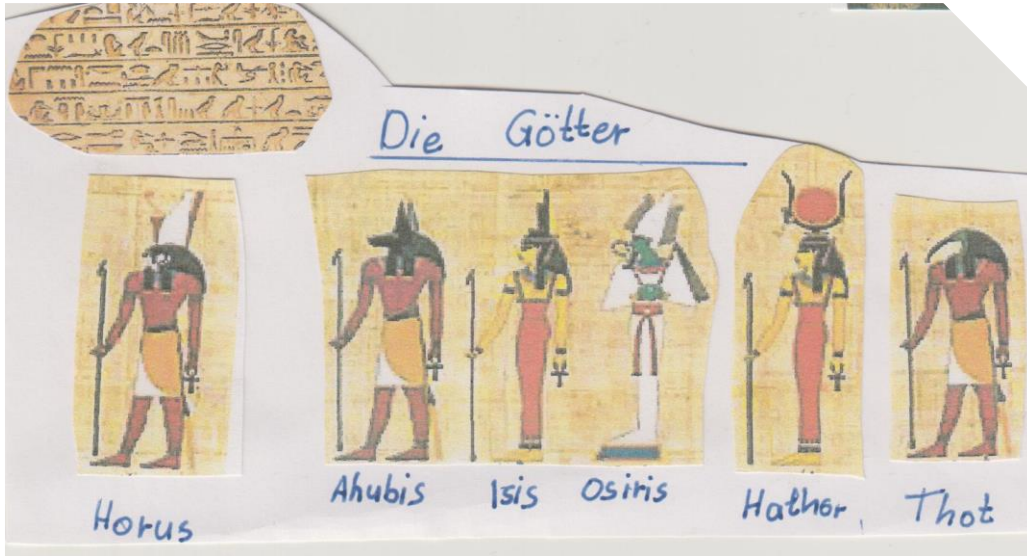 Die Götter
Horus
Ahubis Isis Osiris
Hathor
Thot